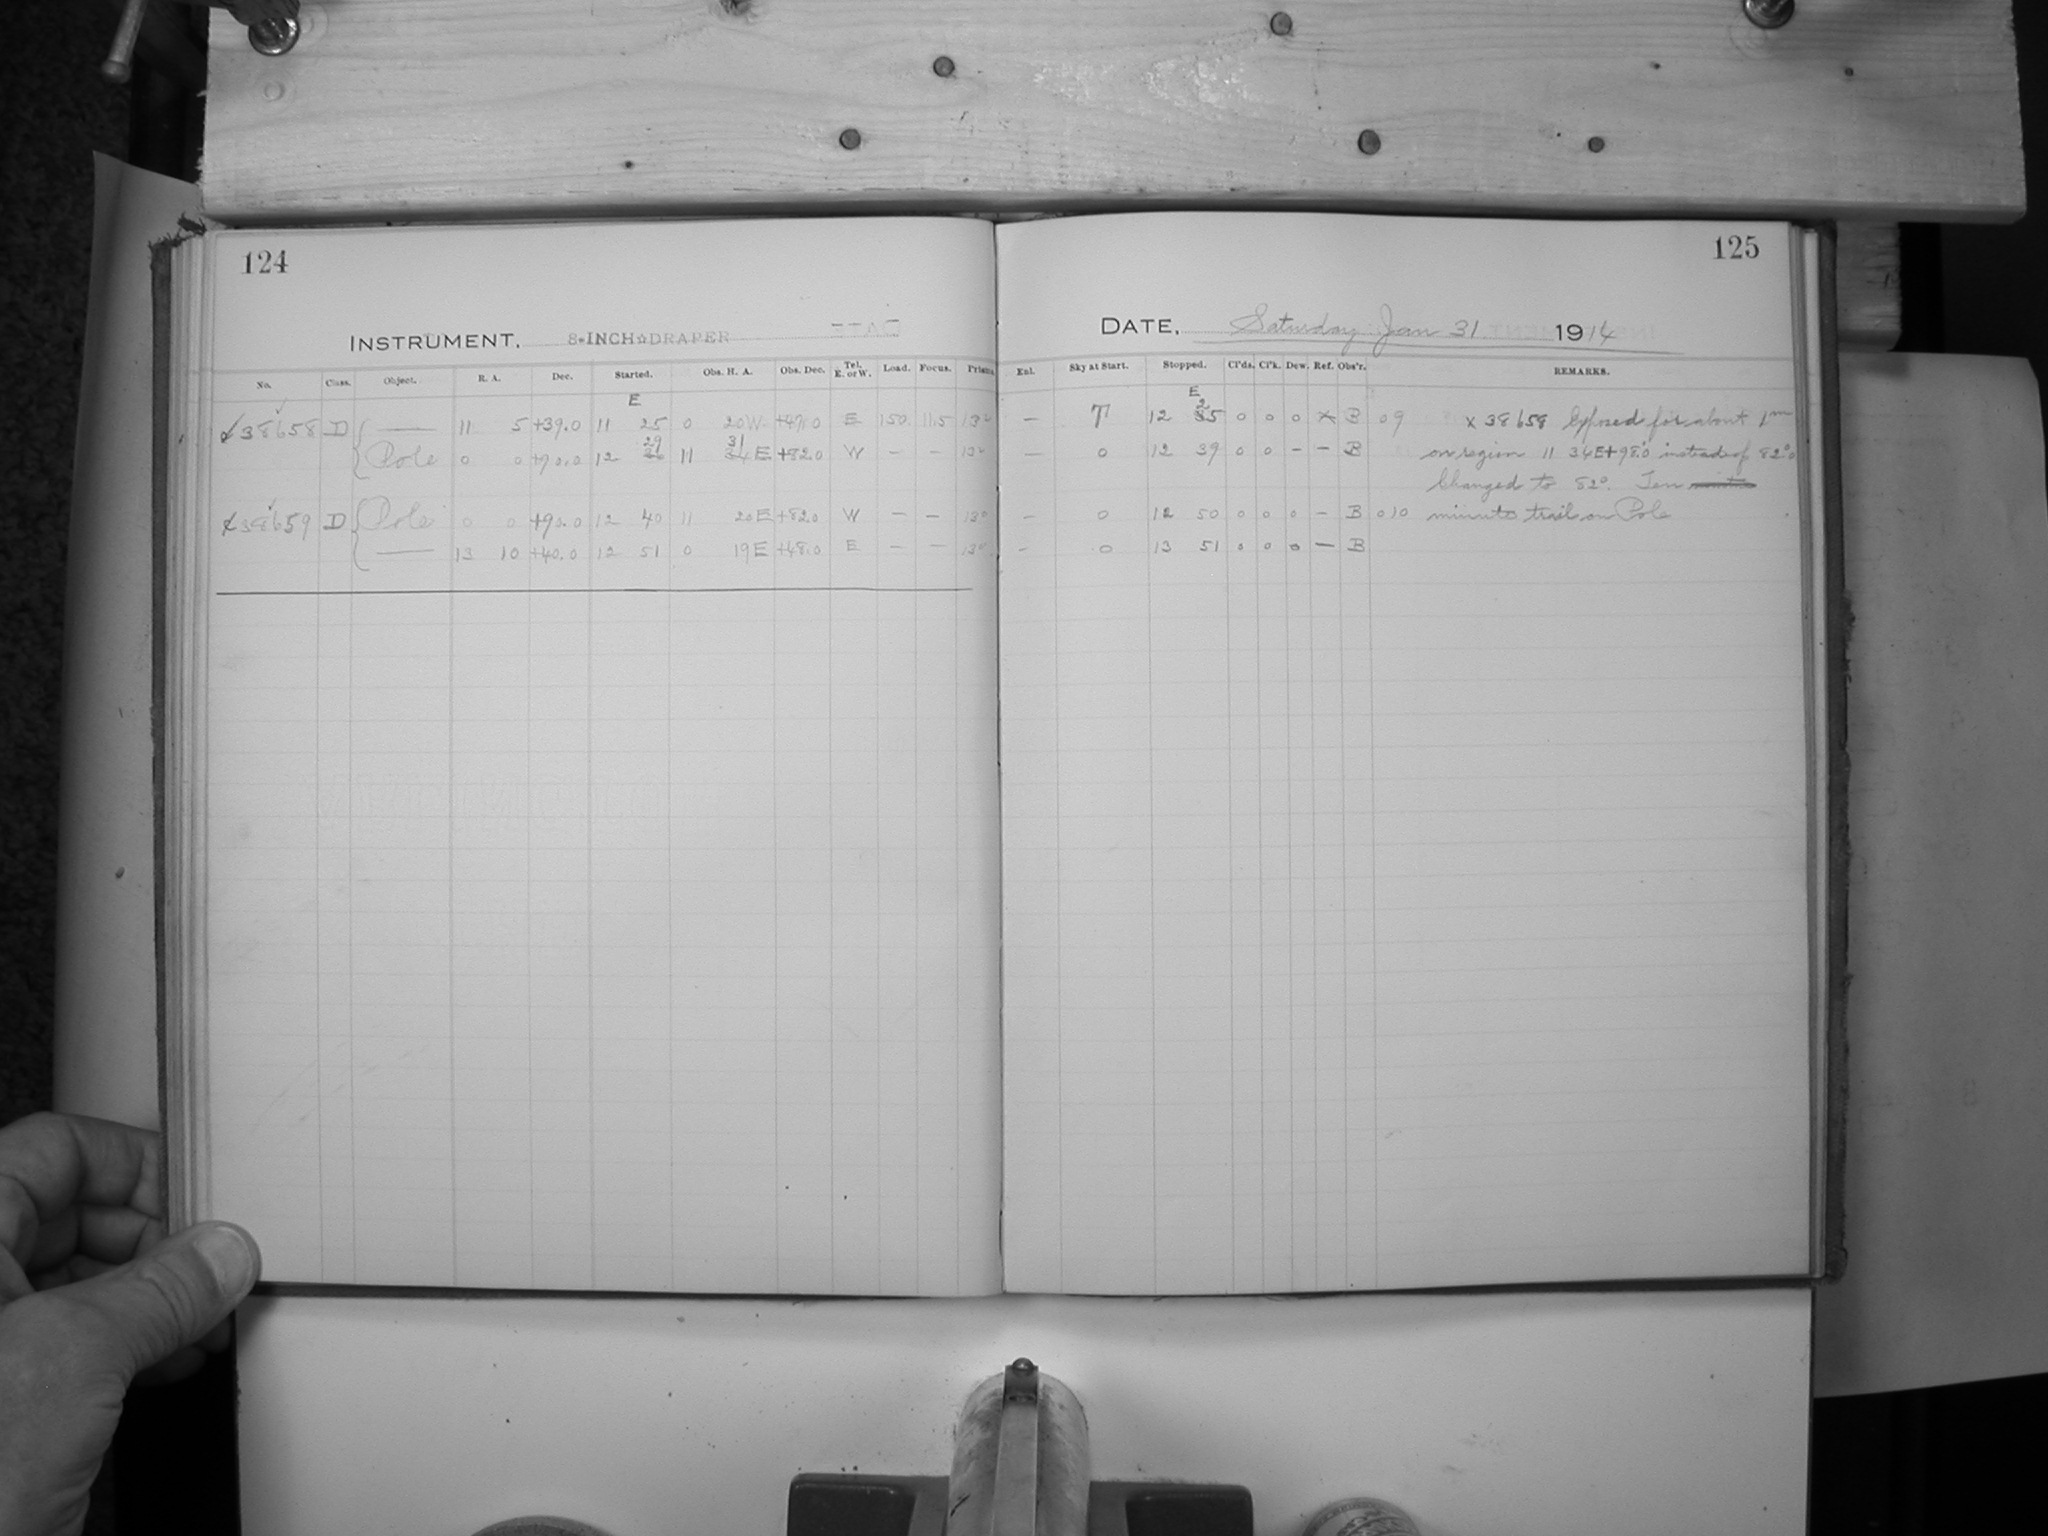 124
INSTRUMENT, 8-INCH☆DRAPER
No. Class. Object. R. A. Dec. Started. Obs. H. A. Obs. Dec. Tel. E. or W. Load. Focus. Prisms
E
38658 D — 11 5 +39.0 11 25 0 20W +47.0 E 150 11.5
29 31
Pole 0 0 +90.0 12 11 34 E +82.0 W — —
38659 D Pole 0 0 +90.0 12 40 11 20E +82.0 W — —
— 13 10 +40.0 12 51 0 19E +48.0 E — —
125
DATE, Saturday Jan 31 1914
Enl. Sky at Start. Stopped. Cl'ds. Cl'k. Dew. Ref. Obs'r. REMARKS.
E
2
— 12 35 0 0 0 x B 09 x 38658 Exposed for about 1m
— 0 12 39 0 0 — — B on region 11 34E+98.0 instead of 82.0
Changed to 82°. Ten
— 0 12 50 0 0 0 — B 010 minute trail on Pole
— 0 13 51 0 0 0 — B